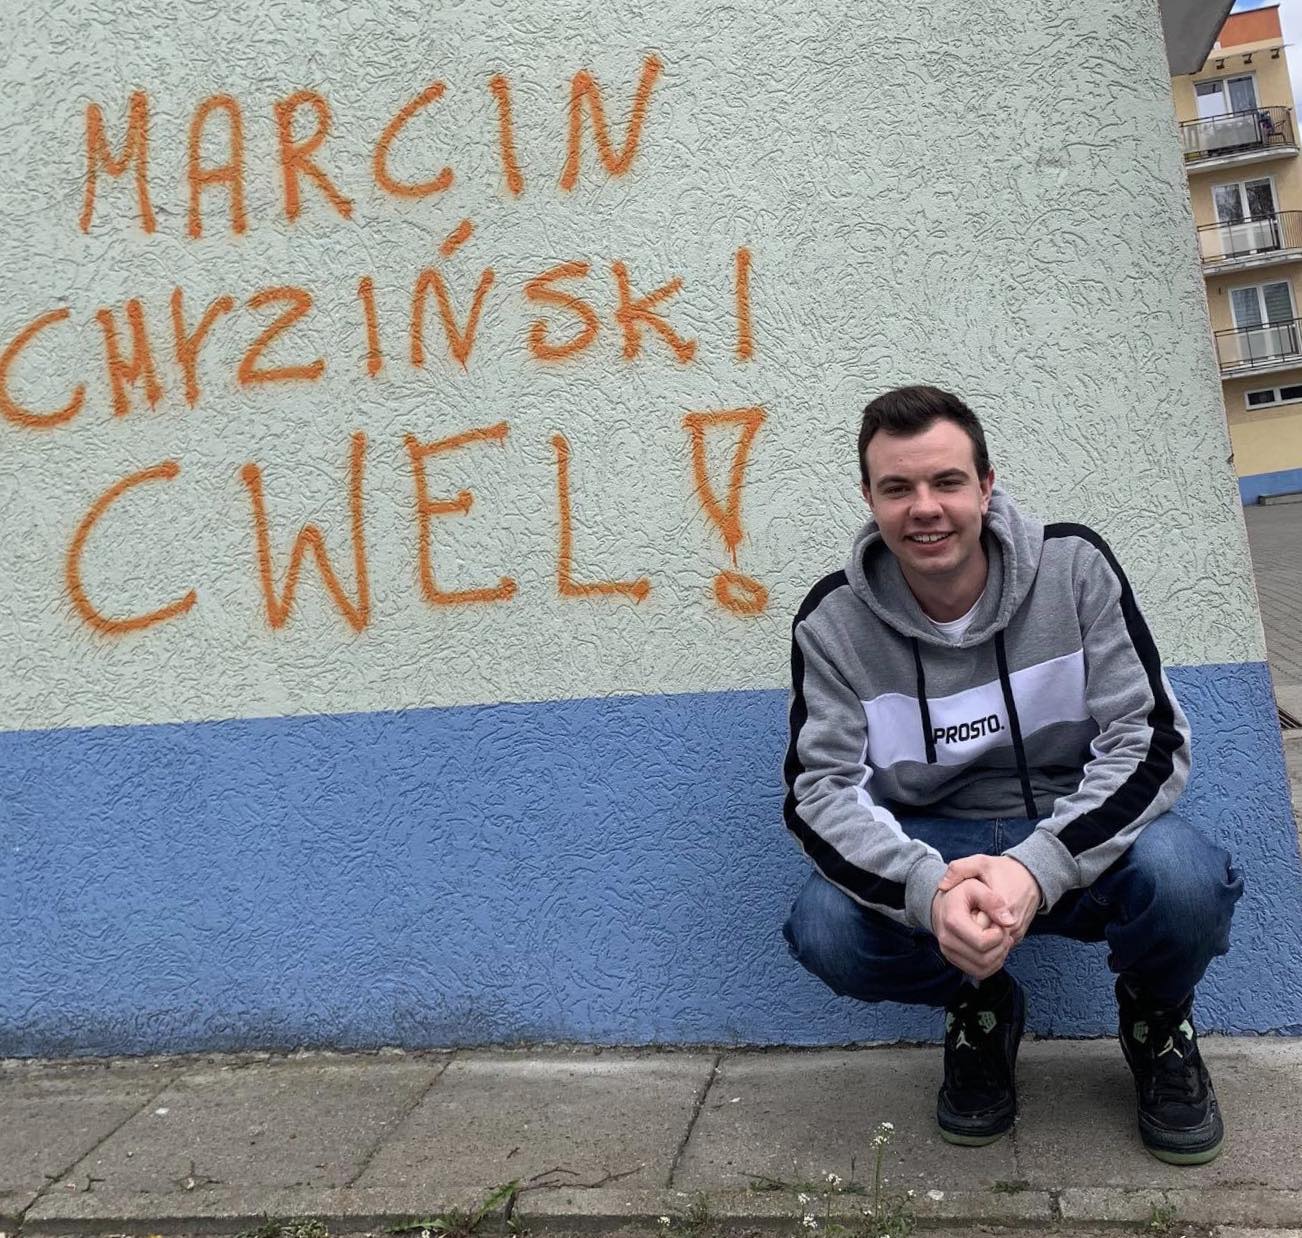 MARCIN
CHrZIŃSKI
CWEL!
PROSTO.